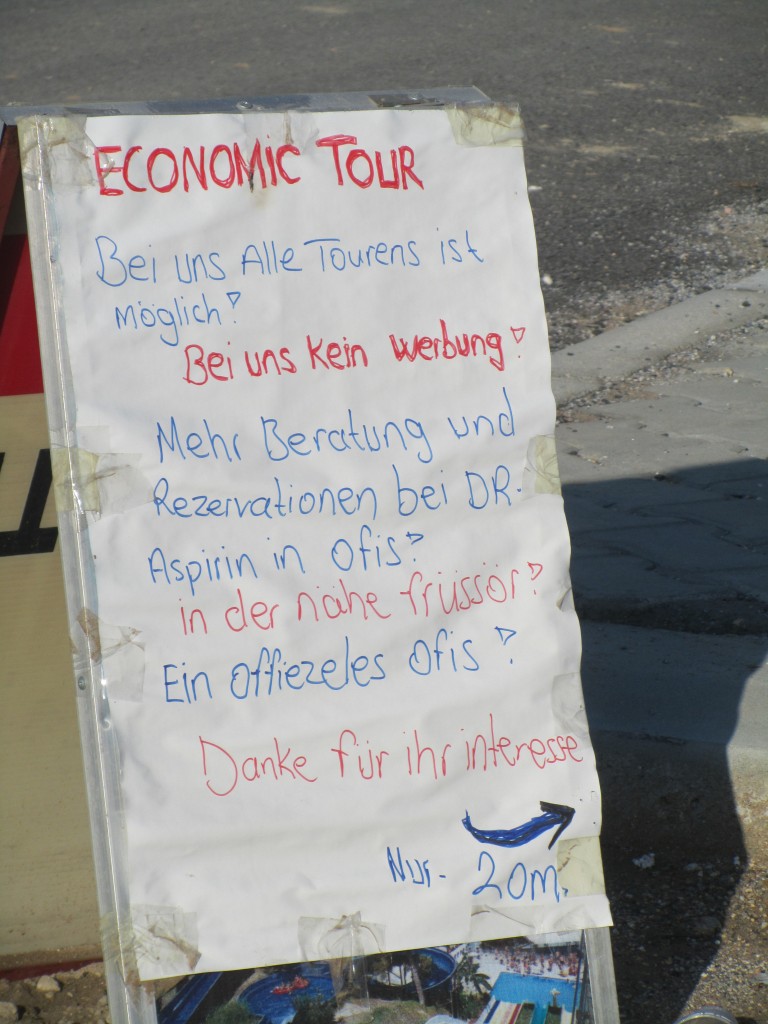 ECONOMIC TOUR
Bei uns Alle Tourens ist
möglich!
Bei uns kein Werbung!
Mehr Beratung und
Rezervationen bei DR.
Aspirin in Ofis!
in der nähe früssör!
Ein offiezeles Ofis!
Danke für ihr interesse
Nur. 20m.